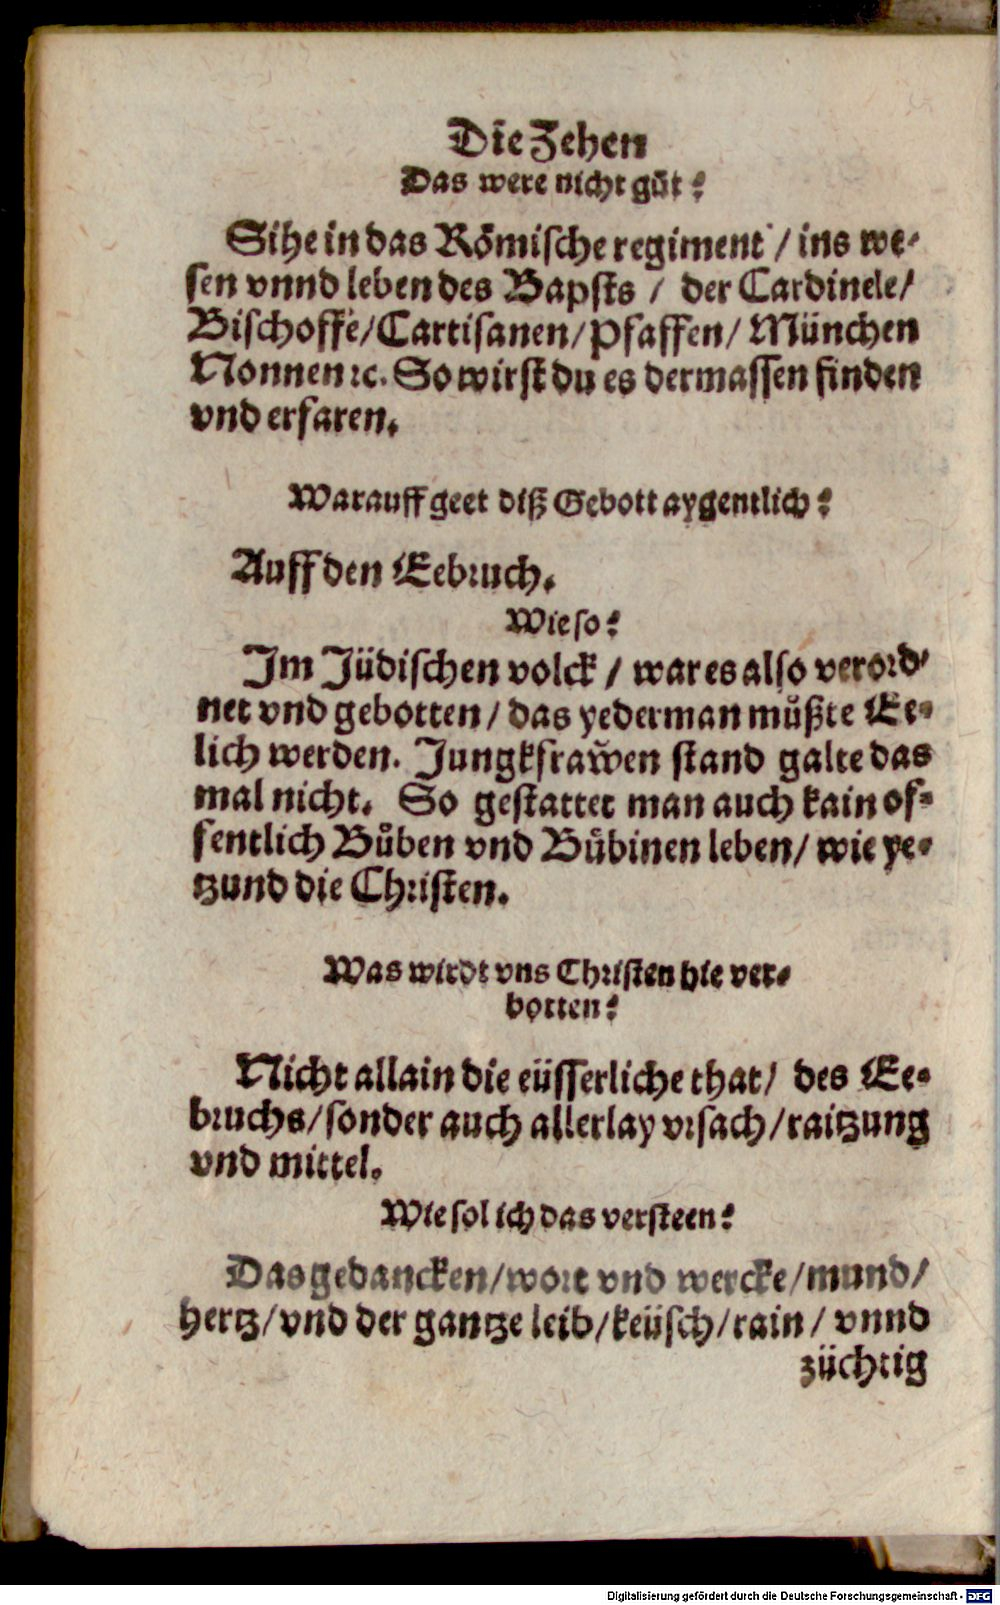 Die Zehen
Das were nicht gůt?
Sihe in das Römische regiment / ins we-
sen vnnd leben des Bapsts / der Cardinele/
Bischoffe/Cartisanen/Pfaffen/ München
Nonnen ꝛc. So wirst du es dermassen finden
vnd erfaren.
Warauff geet diß Gebott aygentlich?
Auff den Eebruch.
Wie so?
Im Jüdischen volck / war es also verord-
net vnd gebotten/ das yederman můßte Ee-
lich werden. Jungkfraw̃en stand galte das
mal nicht. So gestattet man auch kain of-
fentlich Bůben vnd Bůbinen leben/ wie ye-
tzund die Christen.
Was wirdt vns Christen hie ver-
botten?
Nicht allain die eüsserliche that/ des Ee-
bruchs/sonder auch allerlay vrsach/raitzung
vnd mittel.
Wie sol ich das versteen?
Das gedancken/wort vnd wercke/mund/
hertz/vnd der gantze leib/keüsch/rain / vnnd
züchtig
Digitalisierung gefördert durch die Deutsche Forschungsgemeinschaft - DFG